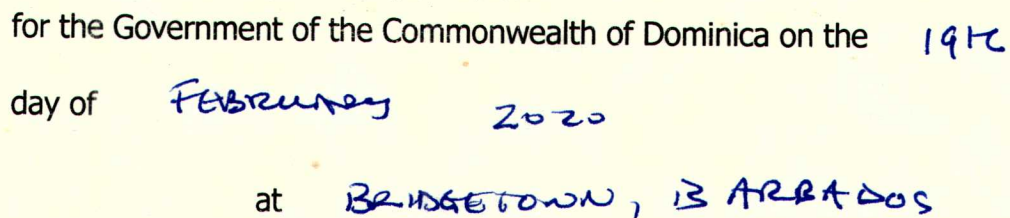 for the Government of the Commonwealth of Dominica on the 19th
day of FEBRUARY 2020
at BRIDGETOWN, BARBADOS